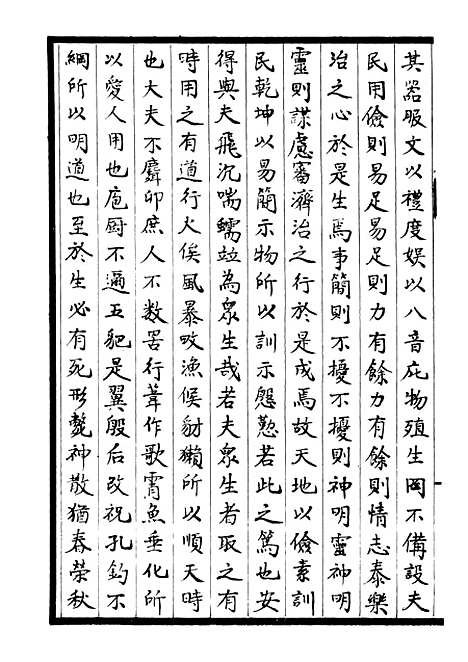 其器服文以禮度娱以八音庇物殖生罔不備設夫
民用儉則易足易足則力有餘力有餘則情志泰樂
治之心於是生焉事簡則不擾不擾則神明靈神明
靈則謀慮審濟治之行於是成焉故天地以儉素訓
民乾坤以易簡示物所以訓示慇懃若此之篤也安
得與夫飛沉喘蠕竝為眾生哉若夫眾生者取之有
時用之有道行火俟風暴畋漁候豺獺所以順天時
也大夫不麛卵庶人不数罟行葦作歌霄魚垂化所
以愛人用也庖厨不邇五豝是翼殷后改祝孔釣不
綱所以明道也至於生必有死形斃神散猶春荣秋